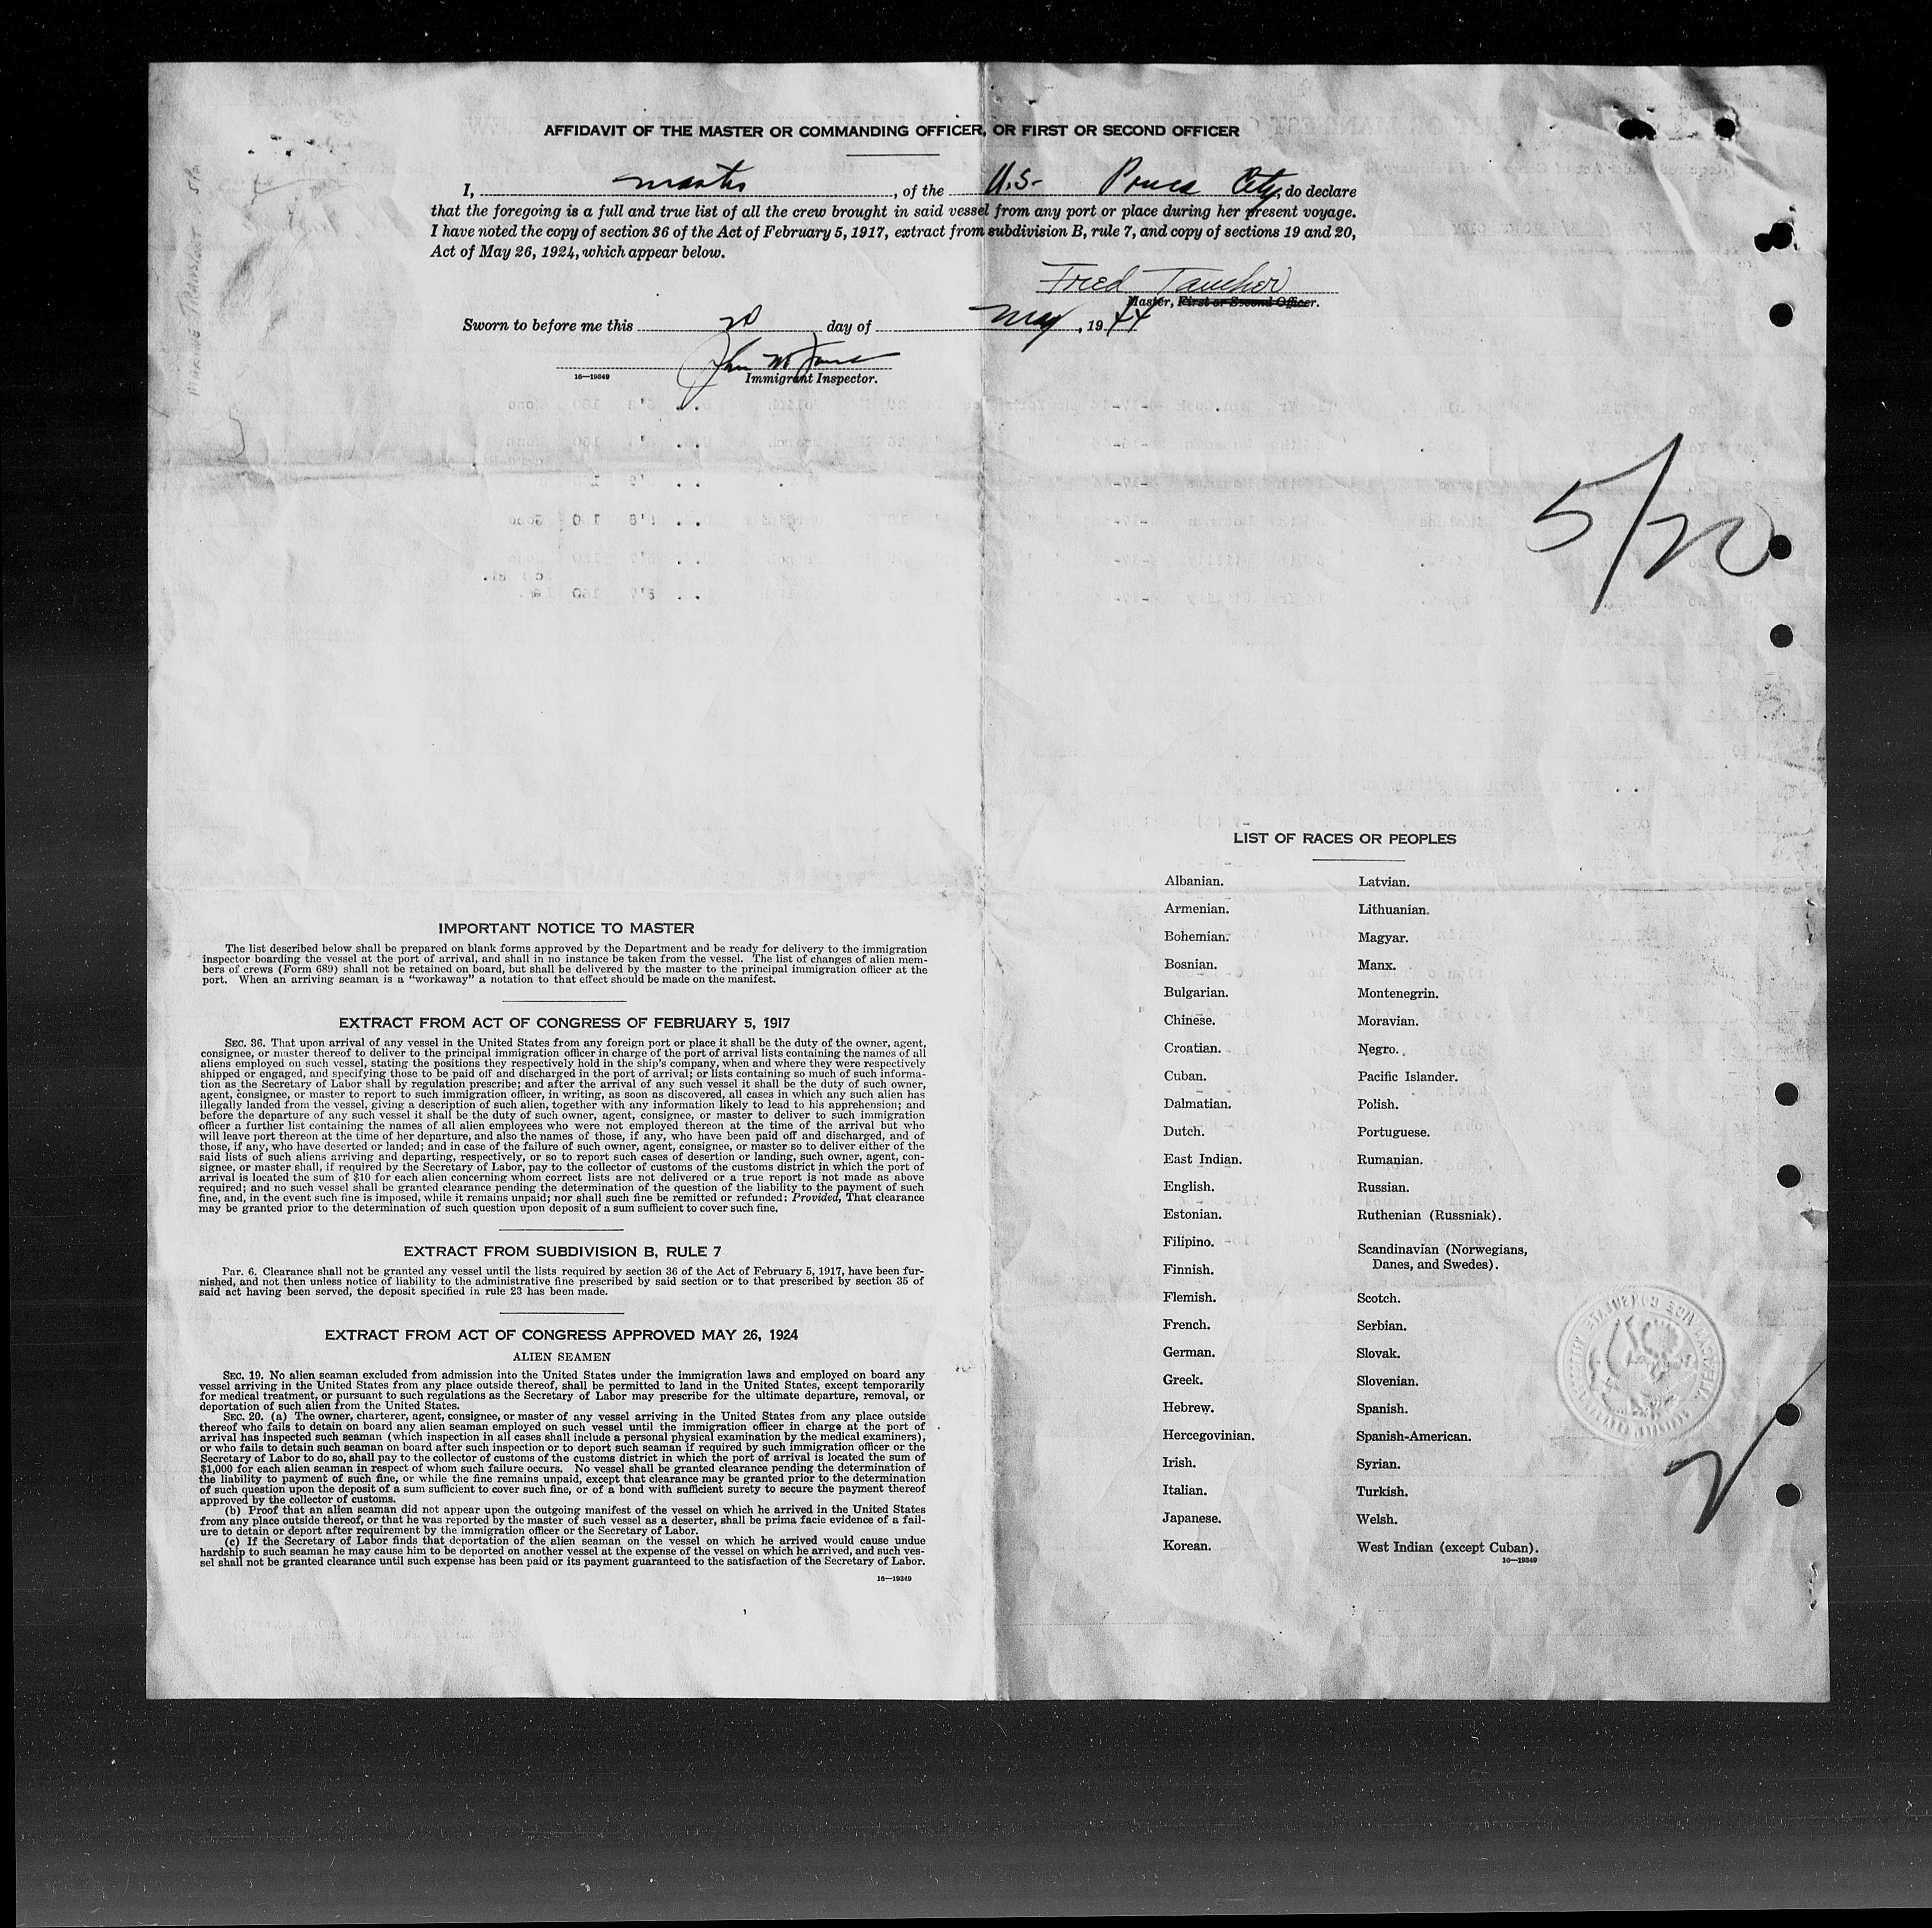 AFFIDAVIT OF THE MASTER OR COMMANDING OFFICER, OR FIRST OR SECOND OFFICER
I, master, of the U.S. Ponca City, do declare
that the foregoing is a full and true list of all the crew brought in said vessel from any port or place during her present voyage.
I have noted the copy of section 36 of the Act of February 5, 1917, extract from subdivision B, rule 7, and copy of sections 19 and 20,
Act of May 26, 1924, which appear below.
Fred
Master, First or Second Officer.
Sworn to before me this 20 day of May, 1944
John
16—19349
Immigrant Inspector.
MARINE TRANSPORT
5/20
IMPORTANT NOTICE TO MASTER
The list described below shall be prepared on blank forms approved by the Department and be ready for delivery to the immigration
inspector boarding the vessel at the port of arrival, and shall in no instance be taken from the vessel. The list of changes of alien mem-
bers of crews (Form 689) shall not be retained on board, but shall be delivered by the master to the principal immigration officer at the
port. When an arriving seaman is a "workaway" a notation to that effect should be made on the manifest.
EXTRACT FROM ACT OF CONGRESS OF FEBRUARY 5, 1917
SEC. 36. That upon arrival of any vessel in the United States from any foreign port or place it shall be the duty of the owner, agent,
consignee, or master thereof to deliver to the principal immigration officer in charge of the port of arrival lists containing the names of all
aliens employed on such vessel, stating the positions they respectively hold in the ship's company, when and where they were respectively
shipped or engaged, and specifying those to be paid off and discharged in the port of arrival; or lists containing so much of such informa-
tion as the Secretary of Labor shall by regulation prescribe; and after the arrival of any such vessel it shall be the duty of such owner,
agent, consignee, or master to report to such immigration officer, in writing, as soon as discovered, all cases in which any such alien has
illegally landed from the vessel, giving a description of such alien, together with any information likely to lead to his apprehension; and
before the departure of any such vessel it shall be the duty of such owner, agent, consignee, or master to deliver to such immigration
officer a further list containing the names of all alien employees who were not employed thereon at the time of the arrival but who
will leave port thereon at the time of her departure, and also the names of those, if any, who have been paid off and discharged, and of
those, if any, who have deserted or landed; and in case of the failure of such owner, agent, consignee, or master so to deliver either of the
said lists of such aliens arriving and departing, respectively, or so to report such cases of desertion or landing, such owner, agent, con-
signee, or master shall, if required by the Secretary of Labor, pay to the collector of customs of the customs district in which the port of
arrival is located the sum of $10 for each alien concerning whom correct lists are not delivered or a true report is not made as above
required; and no such vessel shall be granted clearance pending the determination of the question of the liability to the payment of such
fine, and, in the event such fine is imposed, while it remains unpaid; nor shall such fine be remitted or refunded: Provided, That clearance
may be granted prior to the determination of such question upon deposit of a sum sufficient to cover such fine.
EXTRACT FROM SUBDIVISION B, RULE 7
PAR. 6. Clearance shall not be granted any vessel until the lists required by section 36 of the Act of February 5, 1917, have been fur-
nished, and not then unless notice of liability to the administrative fine prescribed by said section or to that prescribed by section 35 of
said act having been served, the deposit specified in rule 23 has been made.
EXTRACT FROM ACT OF CONGRESS APPROVED MAY 26, 1924
ALIEN SEAMEN
SEC. 19. No alien seaman excluded from admission into the United States under the immigration laws and employed on board any
vessel arriving in the United States from any place outside thereof, shall be permitted to land in the United States, except temporarily
for medical treatment, or pursuant to such regulations as the Secretary of Labor may prescribe for the ultimate departure, removal, or
deportation of such alien from the United States.
SEC. 20. (a) The owner, charterer, agent, consignee, or master of any vessel arriving in the United States from any place outside
thereof who fails to detain on board any alien seaman employed on such vessel until the immigration officer in charge at the port of
arrival has inspected such seaman (which inspection in all cases shall include a personal physical examination by the medical examiners),
or who fails to detain such seaman on board after such inspection or to deport such seaman if required by such immigration officer or the
Secretary of Labor to do so, shall pay to the collector of customs of the customs district in which the port of arrival is located the sum of
$1,000 for each alien seaman in respect of whom such failure occurs. No vessel shall be granted clearance pending the determination of
the liability to payment of such fine, or while the fine remains unpaid, except that clearance may be granted prior to the determination
of such question upon the deposit of a sum sufficient to cover such fine, or of a bond with sufficient surety to secure the payment thereof
approved by the collector of customs.
(b) Proof that an alien seaman did not appear upon the outgoing manifest of the vessel on which he arrived in the United States
from any place outside thereof, or that he was reported by the master of such vessel as a deserter, shall be prima facie evidence of a fail-
ure to detain or deport after requirement by the immigration officer or the Secretary of Labor.
(c) If the Secretary of Labor finds that deportation of the alien seaman on the vessel on which he arrived would cause undue
hardship to such seaman he may cause him to be deported on another vessel at the expense of the vessel on which he arrived, and such ves-
sel shall not be granted clearance until such expense has been paid or its payment guaranteed to the satisfaction of the Secretary of Labor.
16—19349
LIST OF RACES OR PEOPLES
Albanian.
Armenian.
Bohemian.
Bosnian.
Bulgarian.
Chinese.
Croatian.
Cuban.
Dalmatian.
Dutch.
East Indian.
English.
Estonian.
Filipino.
Finnish.
Flemish.
French.
German.
Greek.
Hebrew.
Hercegovinian.
Irish.
Italian.
Japanese.
Korean.
Latvian.
Lithuanian.
Magyar.
Manx.
Montenegrin.
Moravian.
Negro.
Pacific Islander.
Polish.
Portuguese.
Rumanian.
Russian.
Ruthenian (Russniak).
Scandinavian (Norwegians,
Danes, and Swedes).
Scotch.
Serbian.
Slovak.
Slovenian.
Spanish.
Spanish-American.
Syrian.
Turkish.
Welsh.
West Indian (except Cuban).
16—19349